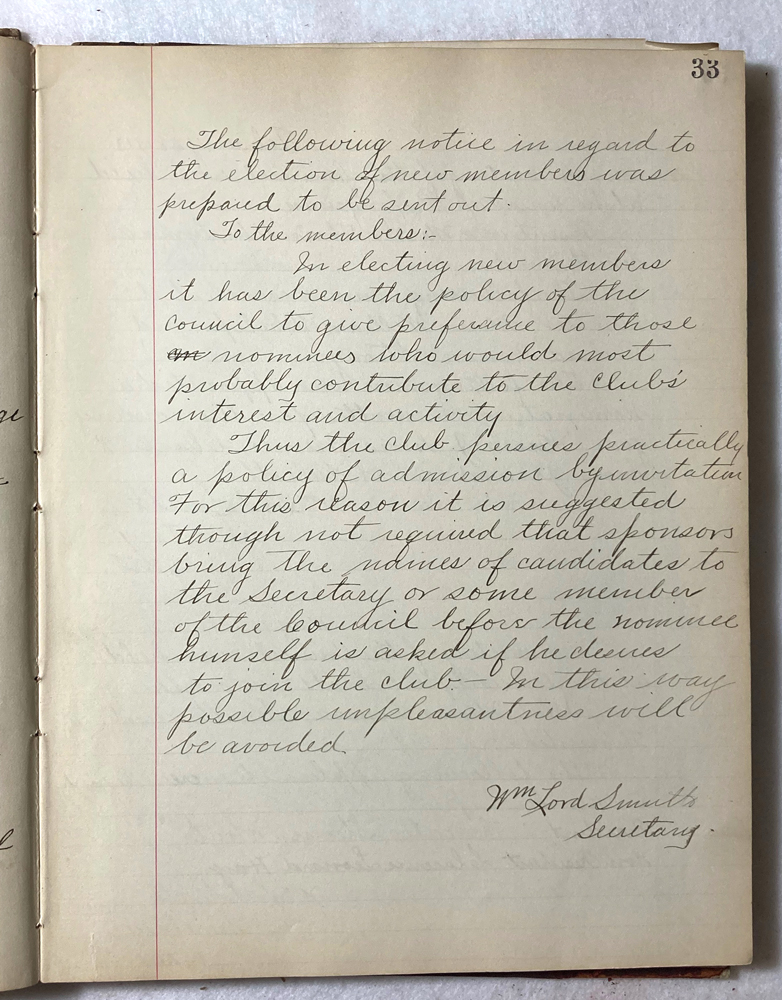 33
The following notice in regard to
the election of new members was
prepared to be sent out.
To the members:-
In electing new members
it has been the policy of the
council to give preferance to those
an nominees who would most
probably contribute to the clubs'
interest and activity
Thus the club persues practically
a policy of admission by invitation
For this reason it is suggested
though not required that sponsors
bring the names of candidates to
the Secretary or some member
of the Council before the nominee
himself is asked if he desires
to join the club - In this way
possible unpleasantness will
be avoided.
Wm Lord Smith
Secretary.